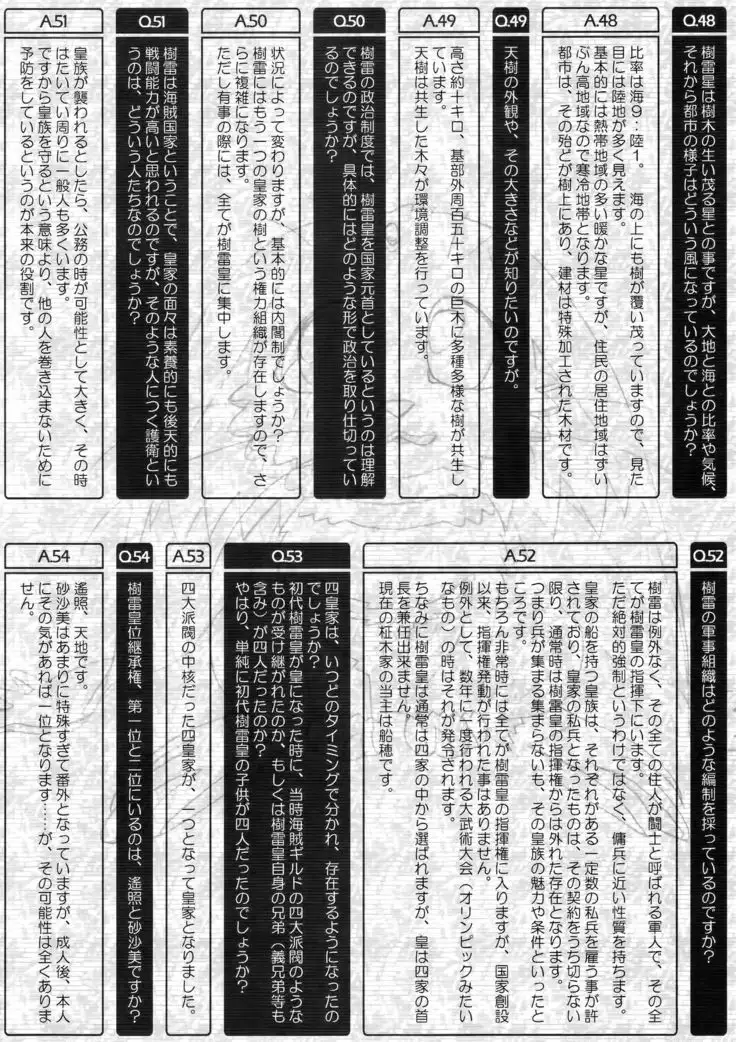 Q.48
樹雷星は樹木の生い茂る星との事ですが、大地と海との比率や気候、
それから都市の様子はどういう風になっているのでしょうか?
A.48
比率は海9：陸1。　海の上にも樹が覆い茂っていますので、見た
目には陸地が多く見えます。
基本的には熱帯地域の多い暖かな星ですが、住民の居住地域はずい
ぶん高地域なので寒冷地帯となります。
都市は、その殆どが樹上にあり、建材は特殊加工された木材です。
Q.49
天樹の外観や、その大きさなどが知りたいのですが。
A.49
高さ約十キロ、基部外周百五十キロの巨木に多種多様な樹が共生し
ています。
天樹は共生した木々が環境調整を行っています。
Q.50
樹雷の政治制度では、樹雷皇を国家元首としているというのは理解
できるのですが、具体的にはどのような形で政治を取り仕切ってい
るのでしょうか?
A.50
状況によって変わりますが、基本的には内閣制でしょうか?
樹雷にはもう一つの皇家の樹という権力組織が存在しますので、さ
らに複雑になります。
ただし有事の際には、全てが樹雷皇に集中します。
Q.51
樹雷は海賊国家ということで、皇家の面々は素養的にも後天的にも
戦闘能力が高いと思われるのですが、そのような人につく護衛とい
うのは、どういう人たちなのでしょうか?
A.51
皇族が襲われるとしたら、公務の時が可能性として大きく、その時
はたいてい周りに一般人も多くいます。
ですから皇族を守るという意味より、他の人を巻き込まないために
予防をしているというのが本来の役割です。
Q.52
樹雷の軍事組織はどのような編制を採っているのですか?
A.52
樹雷は例外なく、その全ての住人が闘士と呼ばれる軍人で、その全
てが樹雷皇の指揮下にいます。
ただ絶対的強制というわけではなく、傭兵に近い性質を持ちます。
皇家の船を持つ皇族は、それぞれがある一定数の私兵を雇う事が許
されており、皇家の私兵となったものは、その契約をうち切らない
限り、通常時は樹雷皇の指揮権からは外れた存在となります。
つまり兵が集まる集まらないも、その皇族の魅力や条件といったと
ころです。
もちろん非常時には全てが樹雷皇の指揮権に入りますが、国家創設
以来、指揮権発動が行われた事はありません。
例外として、数年に一度行われる大武術大会（オリンピックみたい
なもの）の時はそれが発令されます。
ちなみに樹雷皇は通常は四家の中から選ばれますが、皇は四家の首
長を兼任出来ません。
現在の柾木家の当主は船穂です。
Q.53
四皇家は、いつどのタイミングで分かれ、存在するようになったの
でしょうか?
初代樹雷皇が皇になった時に、当時海賊ギルドの四大派閥のような
ものが受け継がれたのか、もしくは樹雷皇自身の兄弟（義兄弟等も
含み）が四人だったのか?
やはり、単純に初代樹雷皇の子供が四人だったのでしょうか?
A.53
四大派閥の中核だった四皇家が、一つとなって皇家となりました。
Q.54
樹雷皇位継承権、第一位と二位にいるのは、遙照と砂沙美ですか?
A.54
遙照、天地です。
砂沙美はあまりに特殊すぎて番外となっていますが、成人後、本人
にその気があれば一位となります……が、その可能性は全くありま
せん。